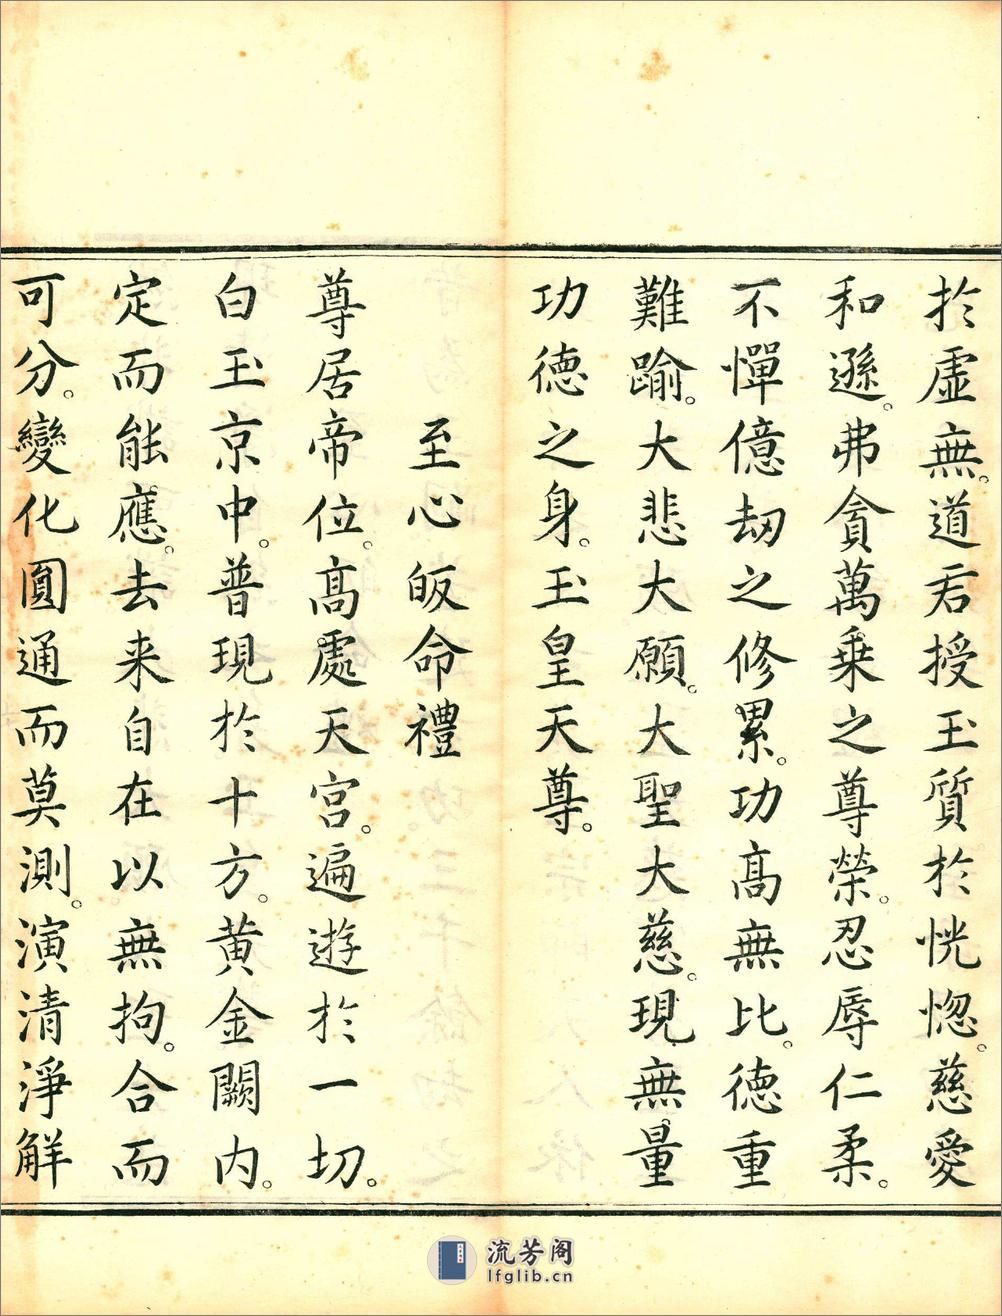 於虛無。道君授玉質於恍惚。慈愛
和遜。弗貪萬乗之尊榮。忍辱仁柔。
不憚億劫之修累。功高無比。德重
難踰。大悲大願。大聖大慈。現無量
功德之身。玉皇天尊。
至心皈命禮
尊居帝位。髙處天宮。遍遊於一切。
白玉京中。普現於十方。黄金闕内。
定而能應。去来自在以無拘。合而
可分。變化圓通而莫測。演清淨解
流芳阁
lfglib.cn